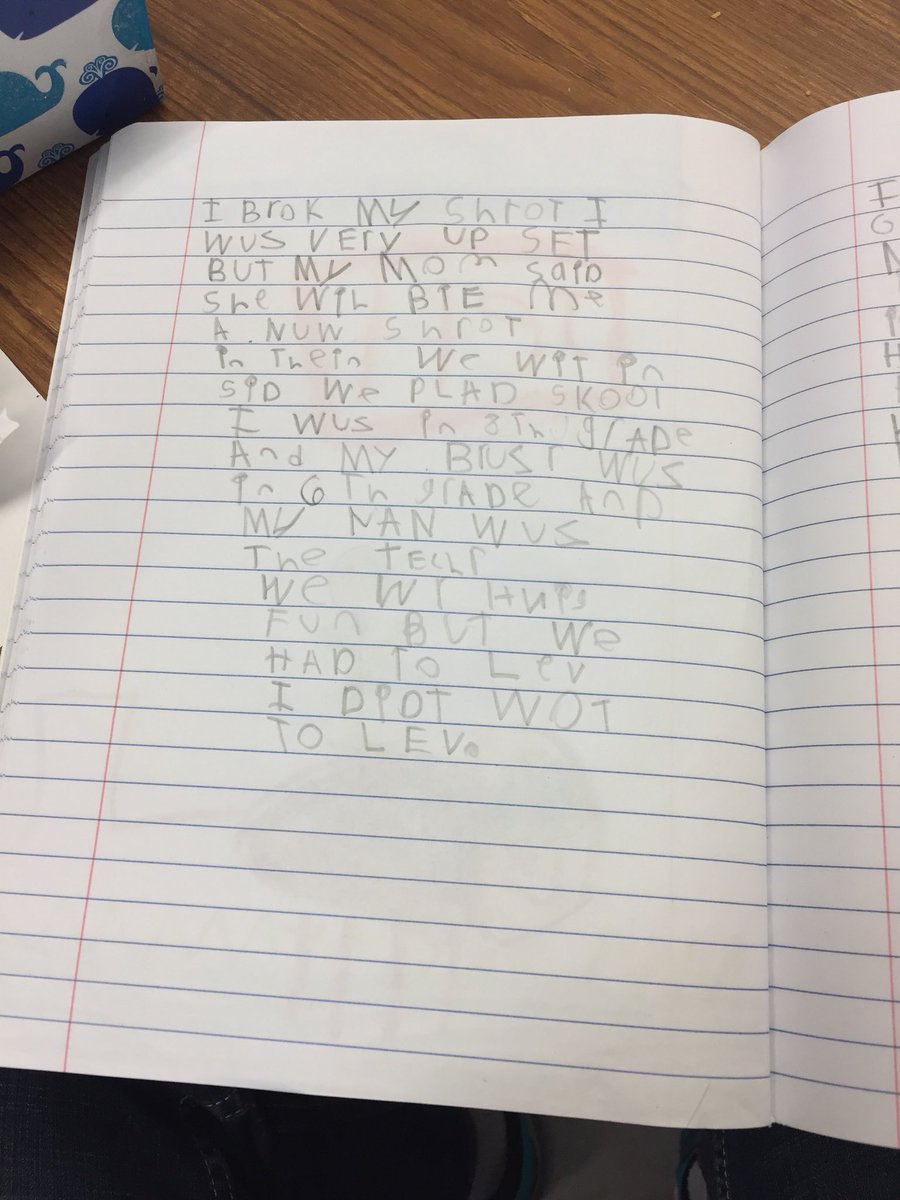 I BroK MY ShroT I
WUS VErY UP SET
BUT MY MOM SaiD
She WIL BIE Me
A NUW ShroT
in Thein We WiT in
SiD We PLAD SKOOl
I WUS in 8Th grADe
And MY BrusT WUS
in 6Th grADe AnD
MY NAN WUS
The TEChr
We Wr HVig
FUn BUT We
HAD To Lev
I DiDT WOT
TO LEV.